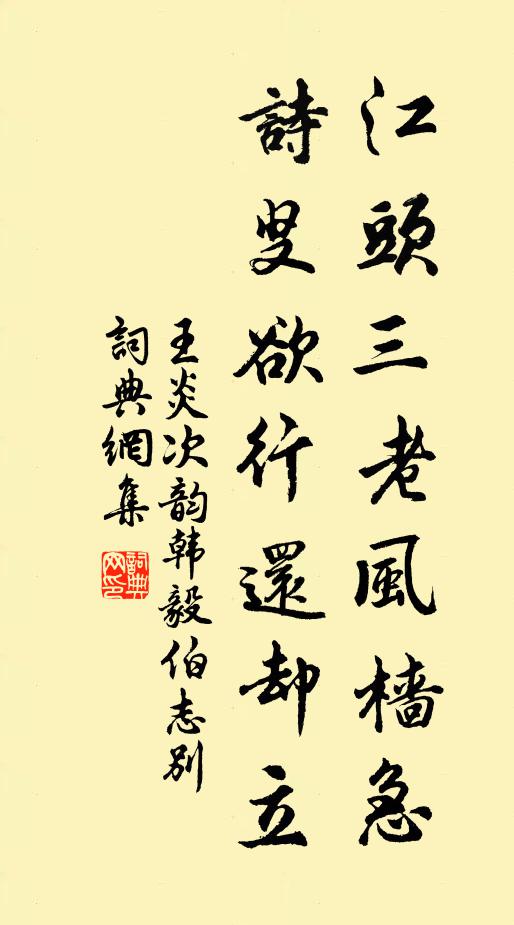 江頭三老風檣急
詩叟欲行還却立
王炎次韵韩毅伯志别
詞典網集
詞典网印